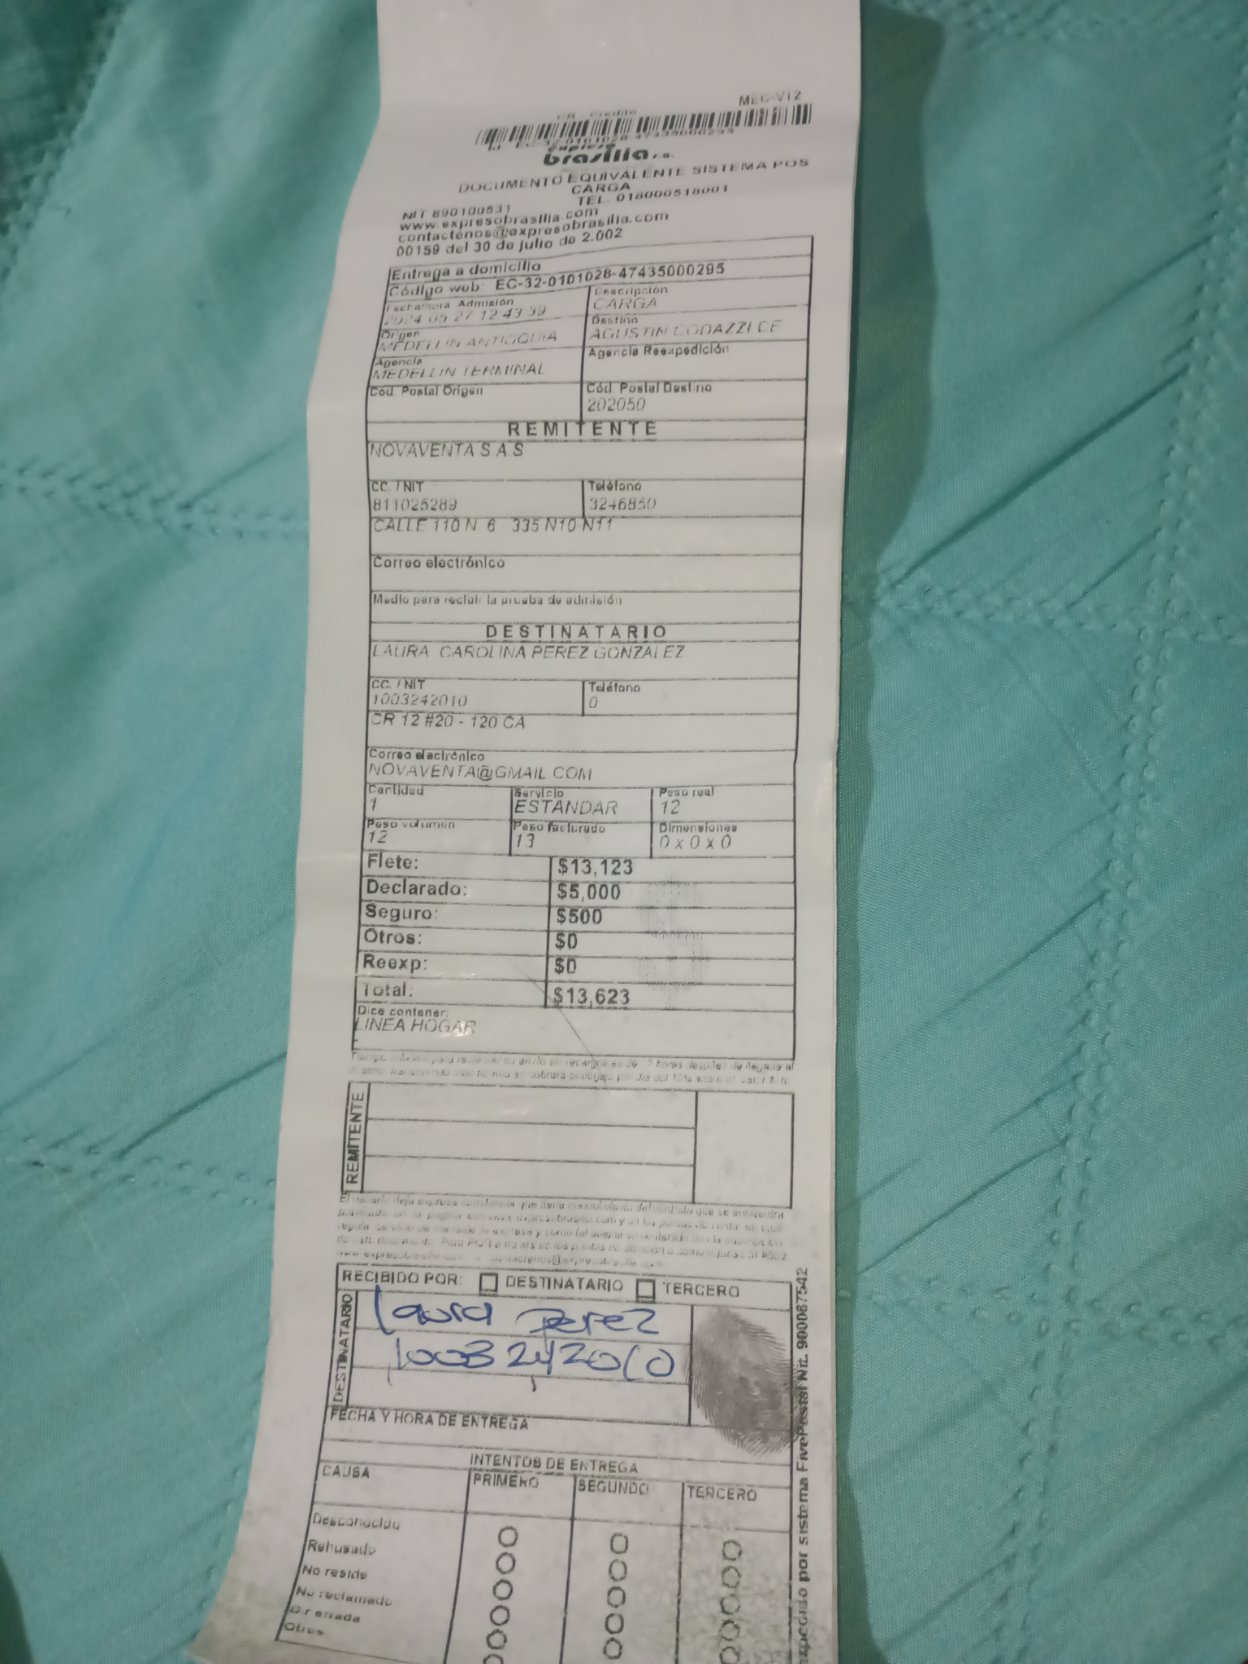 MEC-V12
CR - Credito
expreso
brasilia s.a.
DOCUMENTO EQUIVALENTE SISTEMA POS
CARGA
NIT 890100531 TEL. 018000518001
www.expresobrasilia.com
contactenos@expresobrasilia.com
00159 del 30 de julio de 2.002
Entrega a domicilio
Código web: EC-32-0101028-47435000295
Fecha/hora Admisión Descripción
2024-05-27 12:43:39 CARGA
Origen Destino
MEDELLIN ANTIOQUIA AGUSTIN CODAZZI CE
Agencia Agencia Reexpedición
MEDELLIN TERMINAL
Cód. Postal Origen Cód. Postal Destino
202050
REMITENTE
NOVAVENTA S A S
CC. / NIT Teléfono
811025289 3246850
CALLE 110 N 6 335 N10 N11
Correo electrónico
Medio para recibir la prueba de admisión
DESTINATARIO
LAURA CAROLINA PEREZ GONZALEZ
CC. / NIT Teléfono
1003242010 0
CR 12 #20 - 120 CA
Correo electrónico
NOVAVENTA@GMAIL.COM
Cantidad Servicio Peso real
1 ESTANDAR 12
Peso volumen Peso facturado Dimensiones
12 13 0 x 0 x 0
Flete: $13,123
Declarado: $5,000
Seguro: $500
Otros: $0
Reexp: $0
Total: $13,623
Dice contener:
LINEA HOGAR
REMITENTE
RECIBIDO POR: DESTINATARIO TERCERO
DESTINATARIO
Laura Perez
1003242010
FECHA Y HORA DE ENTREGA
INTENTOS DE ENTREGA
CAUSA PRIMERO SEGUNDO TERCERO
Desconocido
Rehusado
No reside
No reclamado
Dir errada
Otros
expedido por sistema FivePostal Nit. 900087542